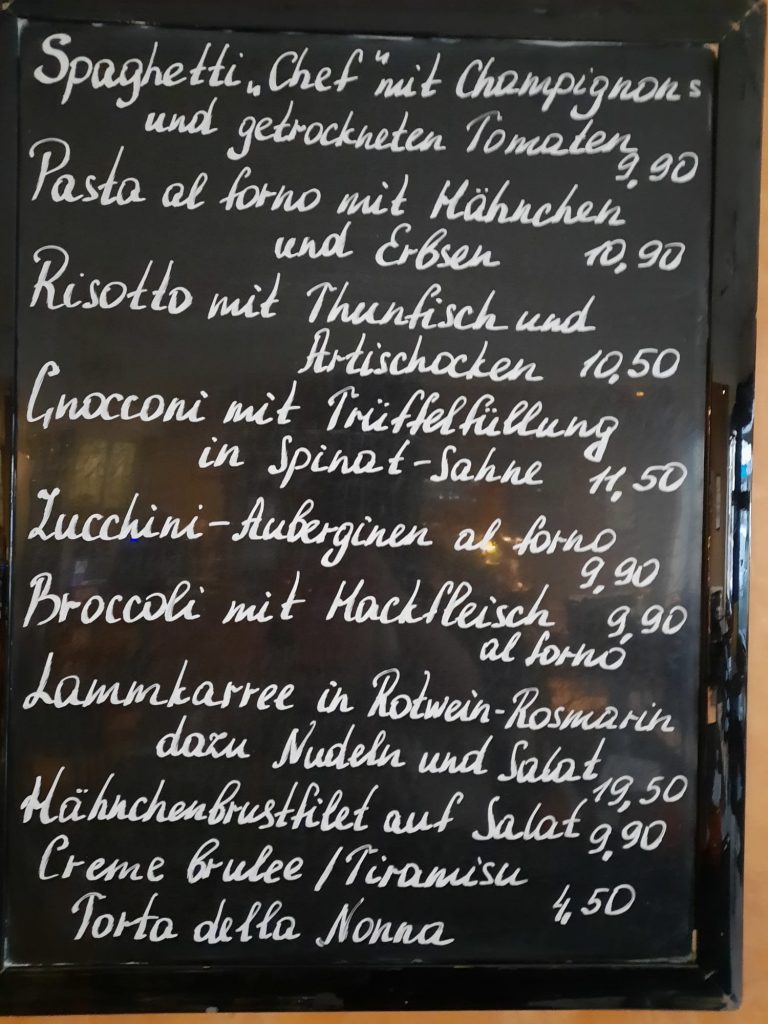 Spaghetti „Chef“ mit Champignons
und getrockneten Tomaten
9,90
Pasta al forno mit Hähnchen
und Erbsen 10,90
Risotto mit Thunfisch und
Artischocken 10,50
Gnocconi mit Trüffelfüllung
in Spinat-Sahne 11,50
Zucchini-Auberginen al forno
9,90
Broccoli mit Hackfleisch 9,90
al forno
Lammkarree in Rotwein-Rosmarin
dazu Nudeln und Salat
19,50
Hähnchenbrustfilet auf Salat 9,90
Creme brulee / Tiramisu
4,50
Torta della Nonna